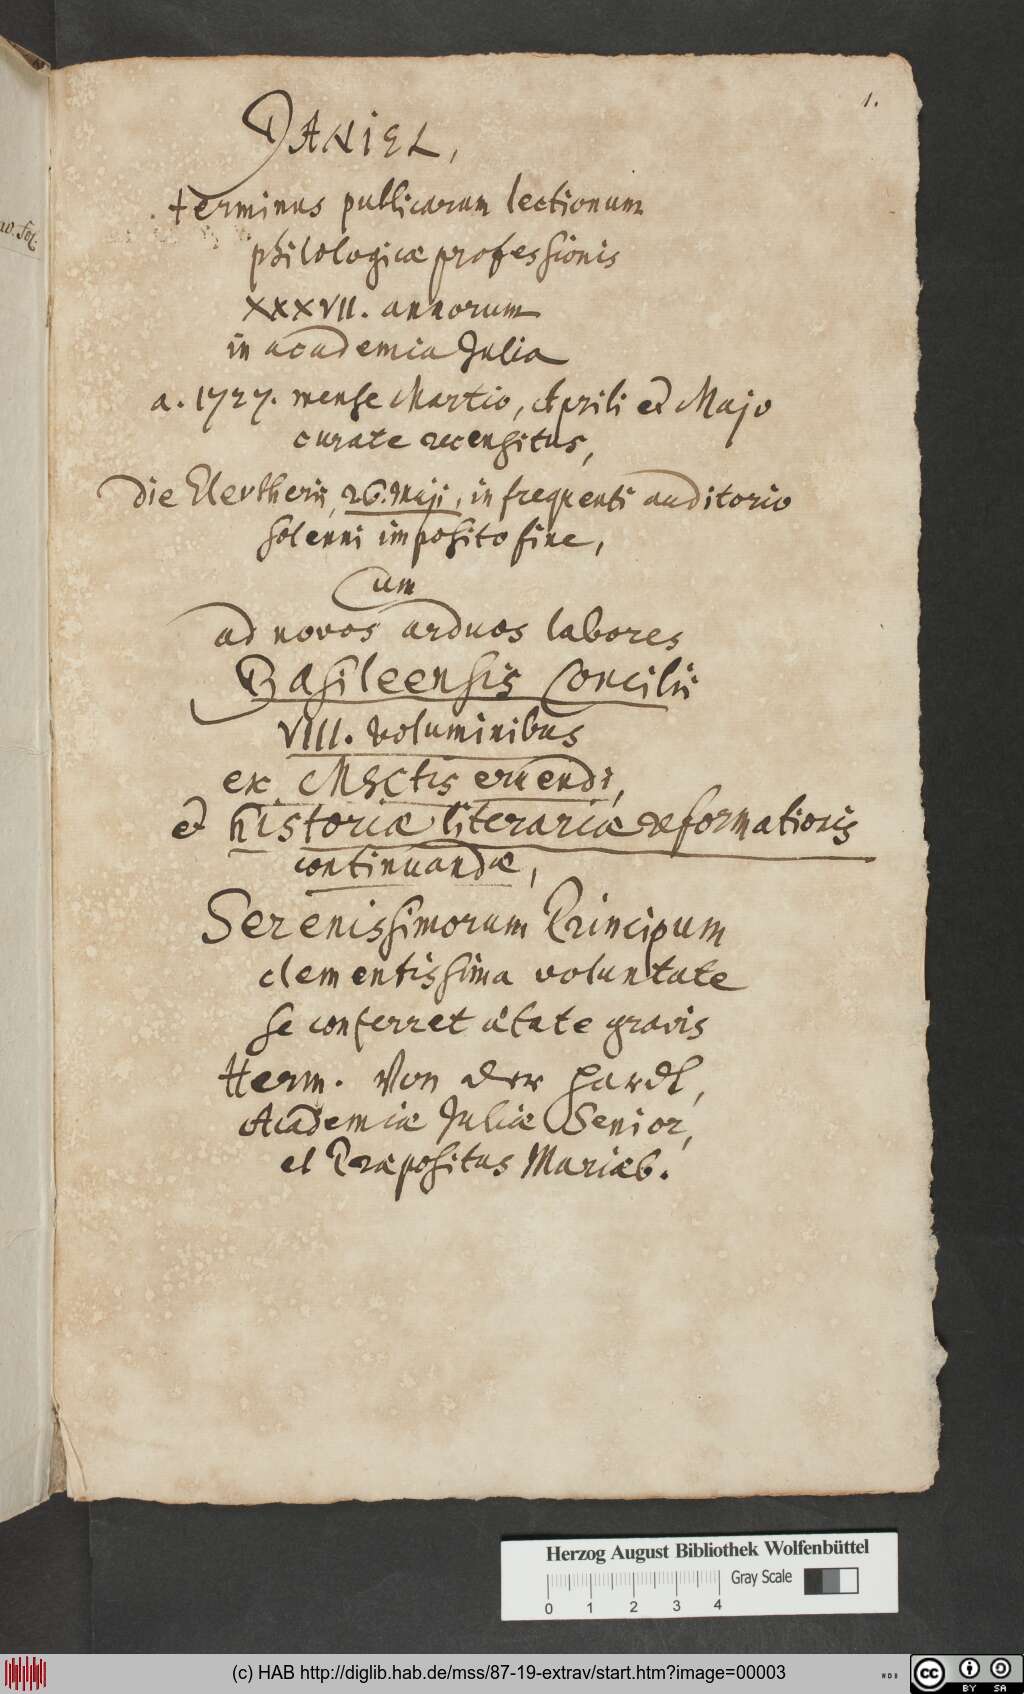 1.
DANIEL,
terminus publicarum lectionum
philologicæ professionis
XXXVII. annorum
in academia Julia
a. 1727. mense Martio, Aprili et Majo
curate recensitus,
die Elevtherii, 26. Maji, in frequenti auditorio
solenni imposito fine,
Cum
ad novos arduos labores
Basileensis Concilii
VIII. voluminibus
ex MSCtis eruendi,
et historiæ literariæ reformationis
continuandæ,
Serenissimorum Principum
clementissima voluntate
se conferret ætate gravis
Herm. von der Hardt,
Academiæ Juliæ Senior,
et Præpositus Mariæb.
Herzog August Bibliothek Wolfenbüttel
Gray Scale
0 1 2 3 4
(c) HAB http://diglib.hab.de/mss/87-19-extrav/start.htm?image=00003
WDB
cc BY SA